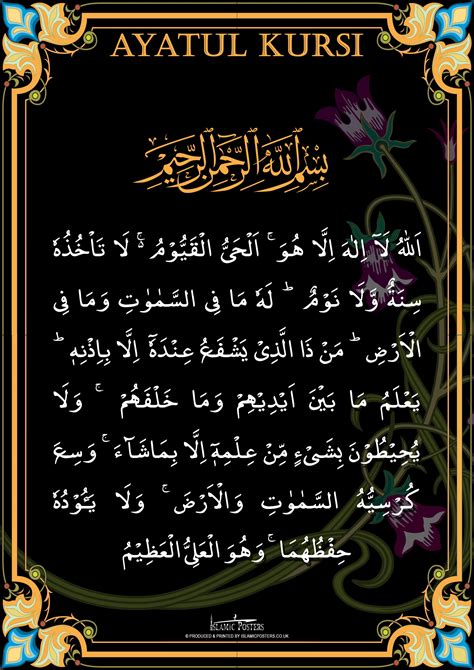 AYATUL KURSI
بِسْمِ اللّٰهِ الرَّحْمٰنِ الرَّحِيْمِ
اَللّٰهُ لَآ اِلٰهَ اِلَّا هُوَ ۚ اَلْحَىُّ الْقَيُّوْمُ ۬ۚ لَا تَاْخُذُهٗ
سِنَةٌ وَّلَا نَوْمٌ ؕ لَهٗ مَا فِى السَّمٰوٰتِ وَمَا فِى
الْاَرْضِ ؕ مَنْ ذَا الَّذِىْ يَشْفَعُ عِنْدَهٗٓ اِلَّا بِاِذْنِهٖ ؕ
يَعْلَمُ مَا بَيْنَ اَيْدِيْهِمْ وَمَا خَلْفَهُمْ ۚ وَلَا
يُحِيْطُوْنَ بِشَىْءٍ مِّنْ عِلْمِهٖٓ اِلَّا بِمَاشَآءَ ۚ وَسِعَ
كُرْسِيُّهُ السَّمٰوٰتِ وَالْاَرْضَ ۚ وَلَا يَــُٔوْدُهٗ
حِفْظُهُمَا ۚ وَهُوَ الْعَلِىُّ الْعَظِيْمُ
ISLAMIC POSTERS
© PRODUCED & PRINTED BY ISLAMICPOSTERS.CO.UK